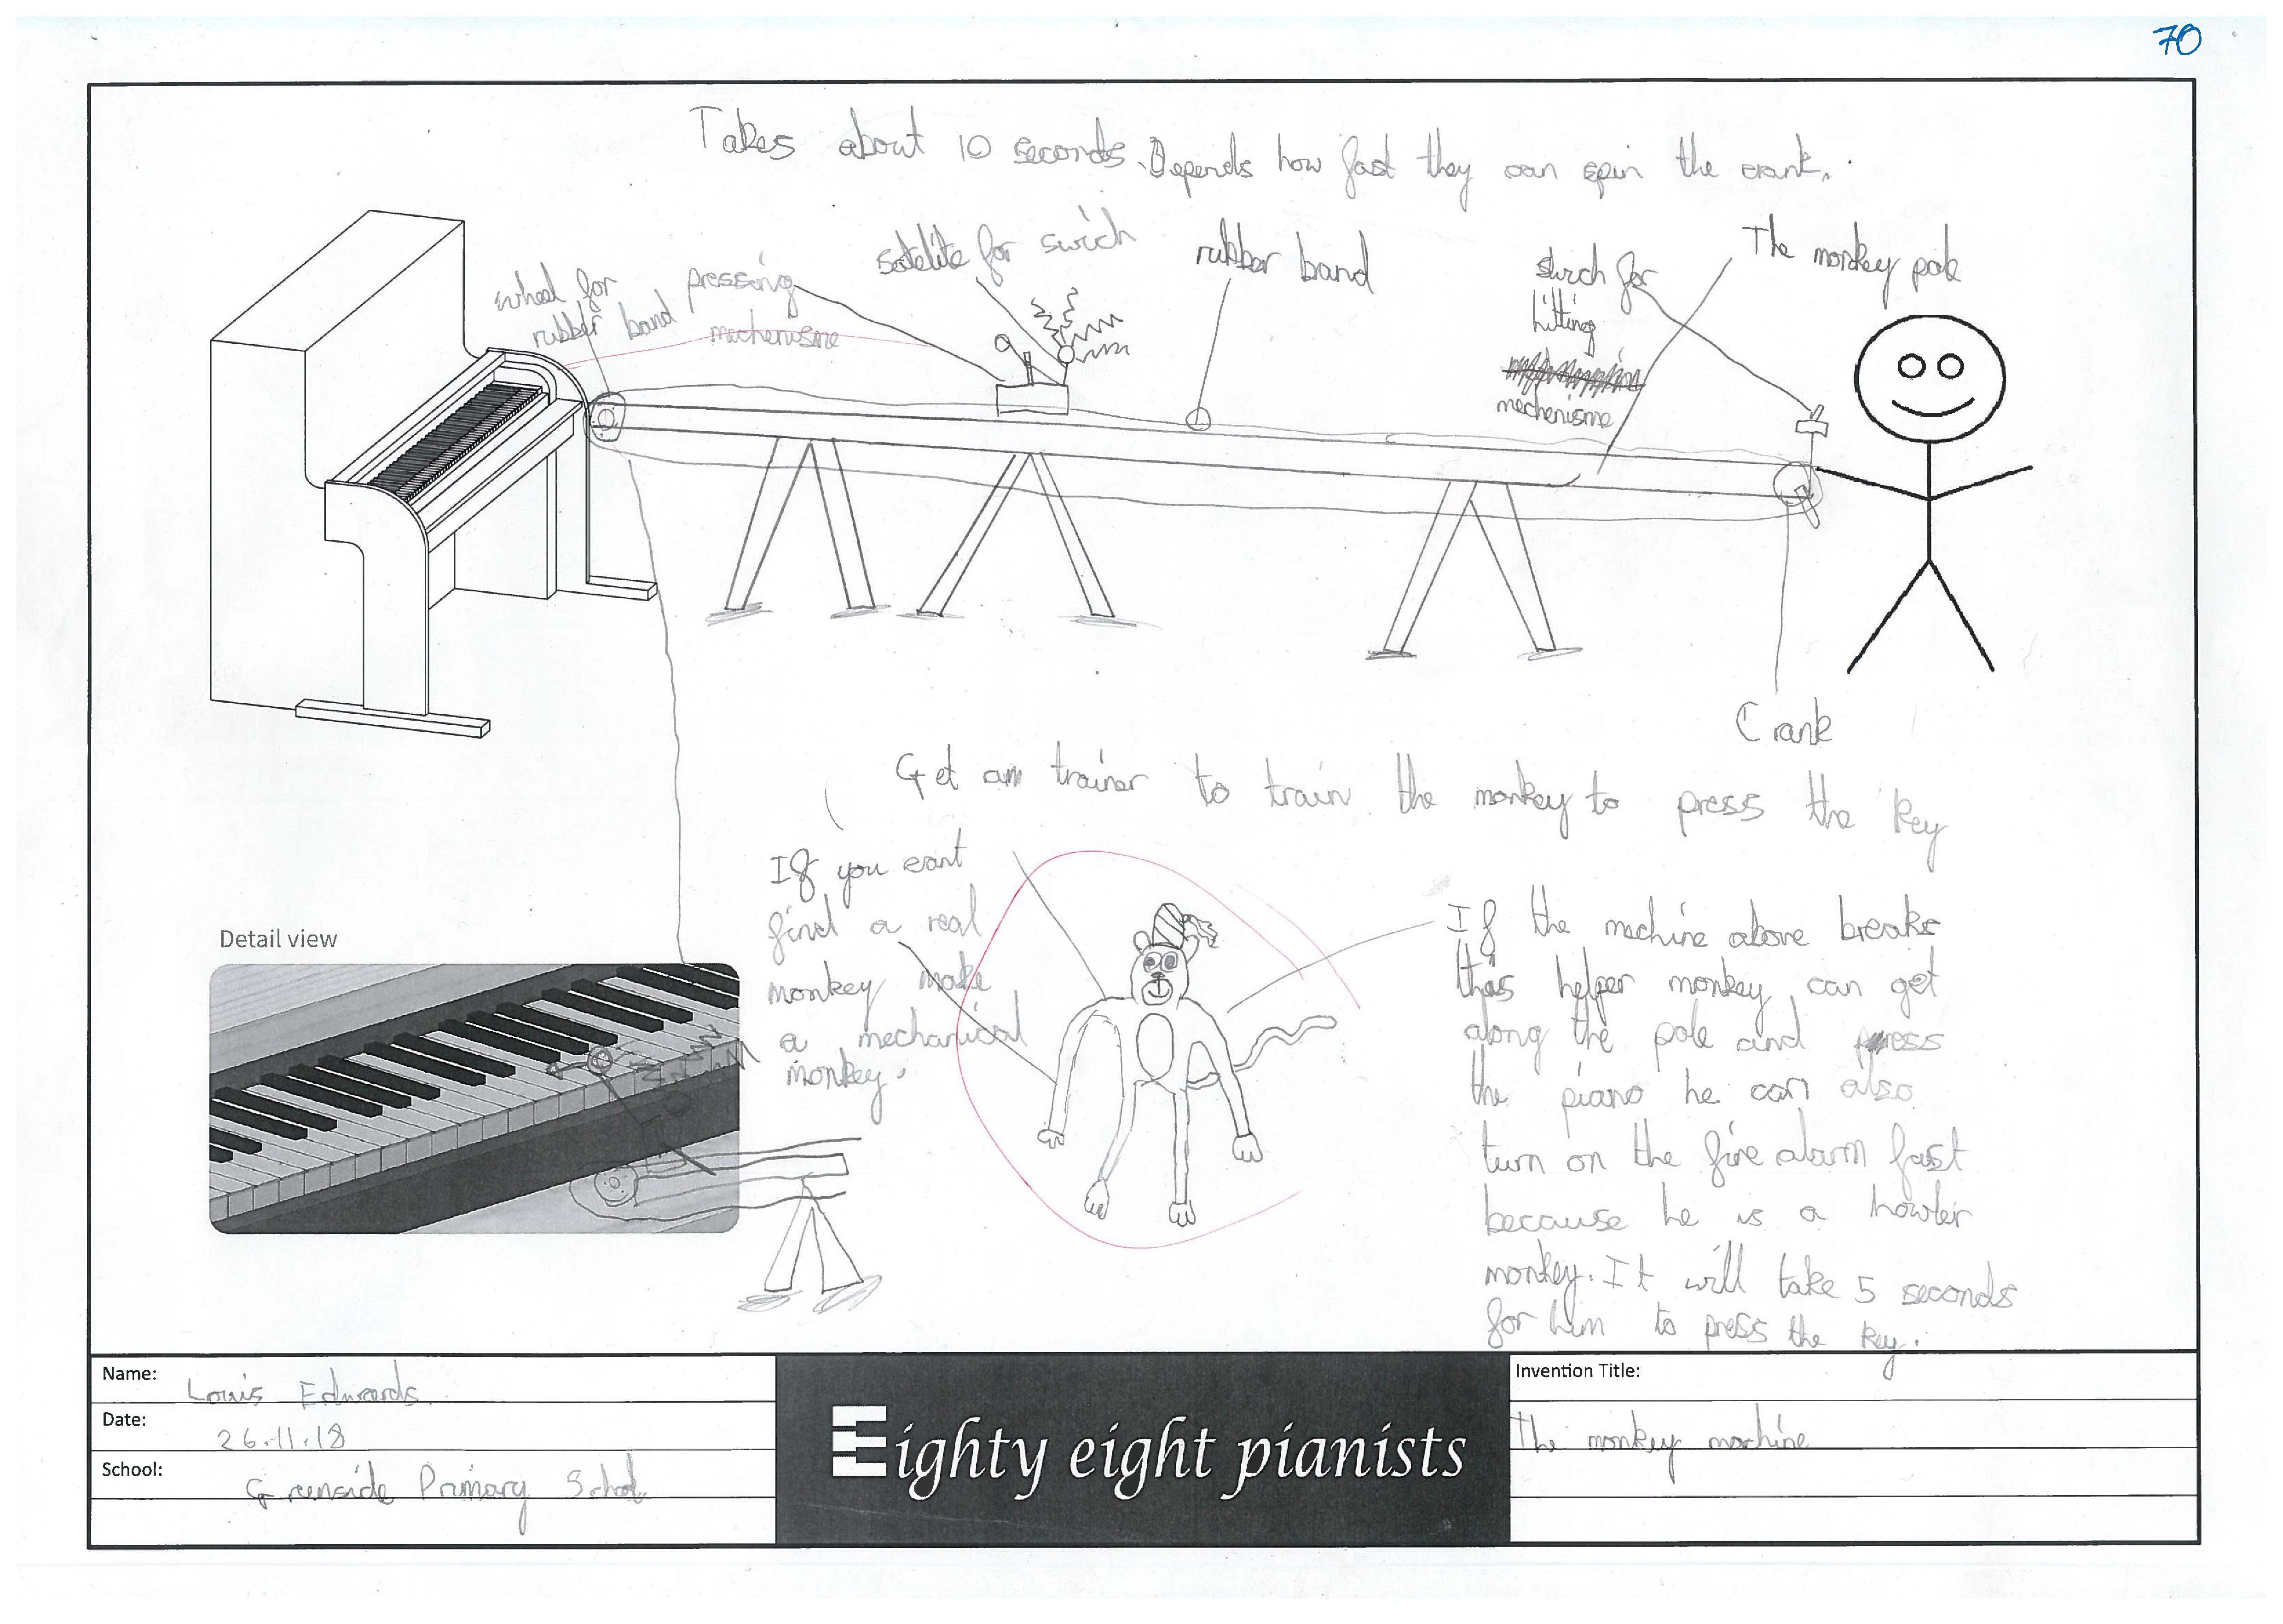 70
Takes about 10 seconds. Depends how fast they can spin the crank.
wheel for
rubber band
pressing
mechenisme
satelite for swich
rubber band
swich for
hitting
mechenisme
The monkey pole
Crank
Get an trainer to train the monkey to press the key
If you cant
find a real
monkey make
a mechanical
monkey.
If the machine above breaks
this helper monkey can get
along the pole and press
the piano he can also
turn on the fire alarm fast
because he is a howler
monkey. It will take 5 seconds
for him to press the key.
Detail view
Name: Louis Edwards
Date: 26.11.18
School: Greenside Primary School
Eighty eight pianists
Invention Title:
The monkey machine